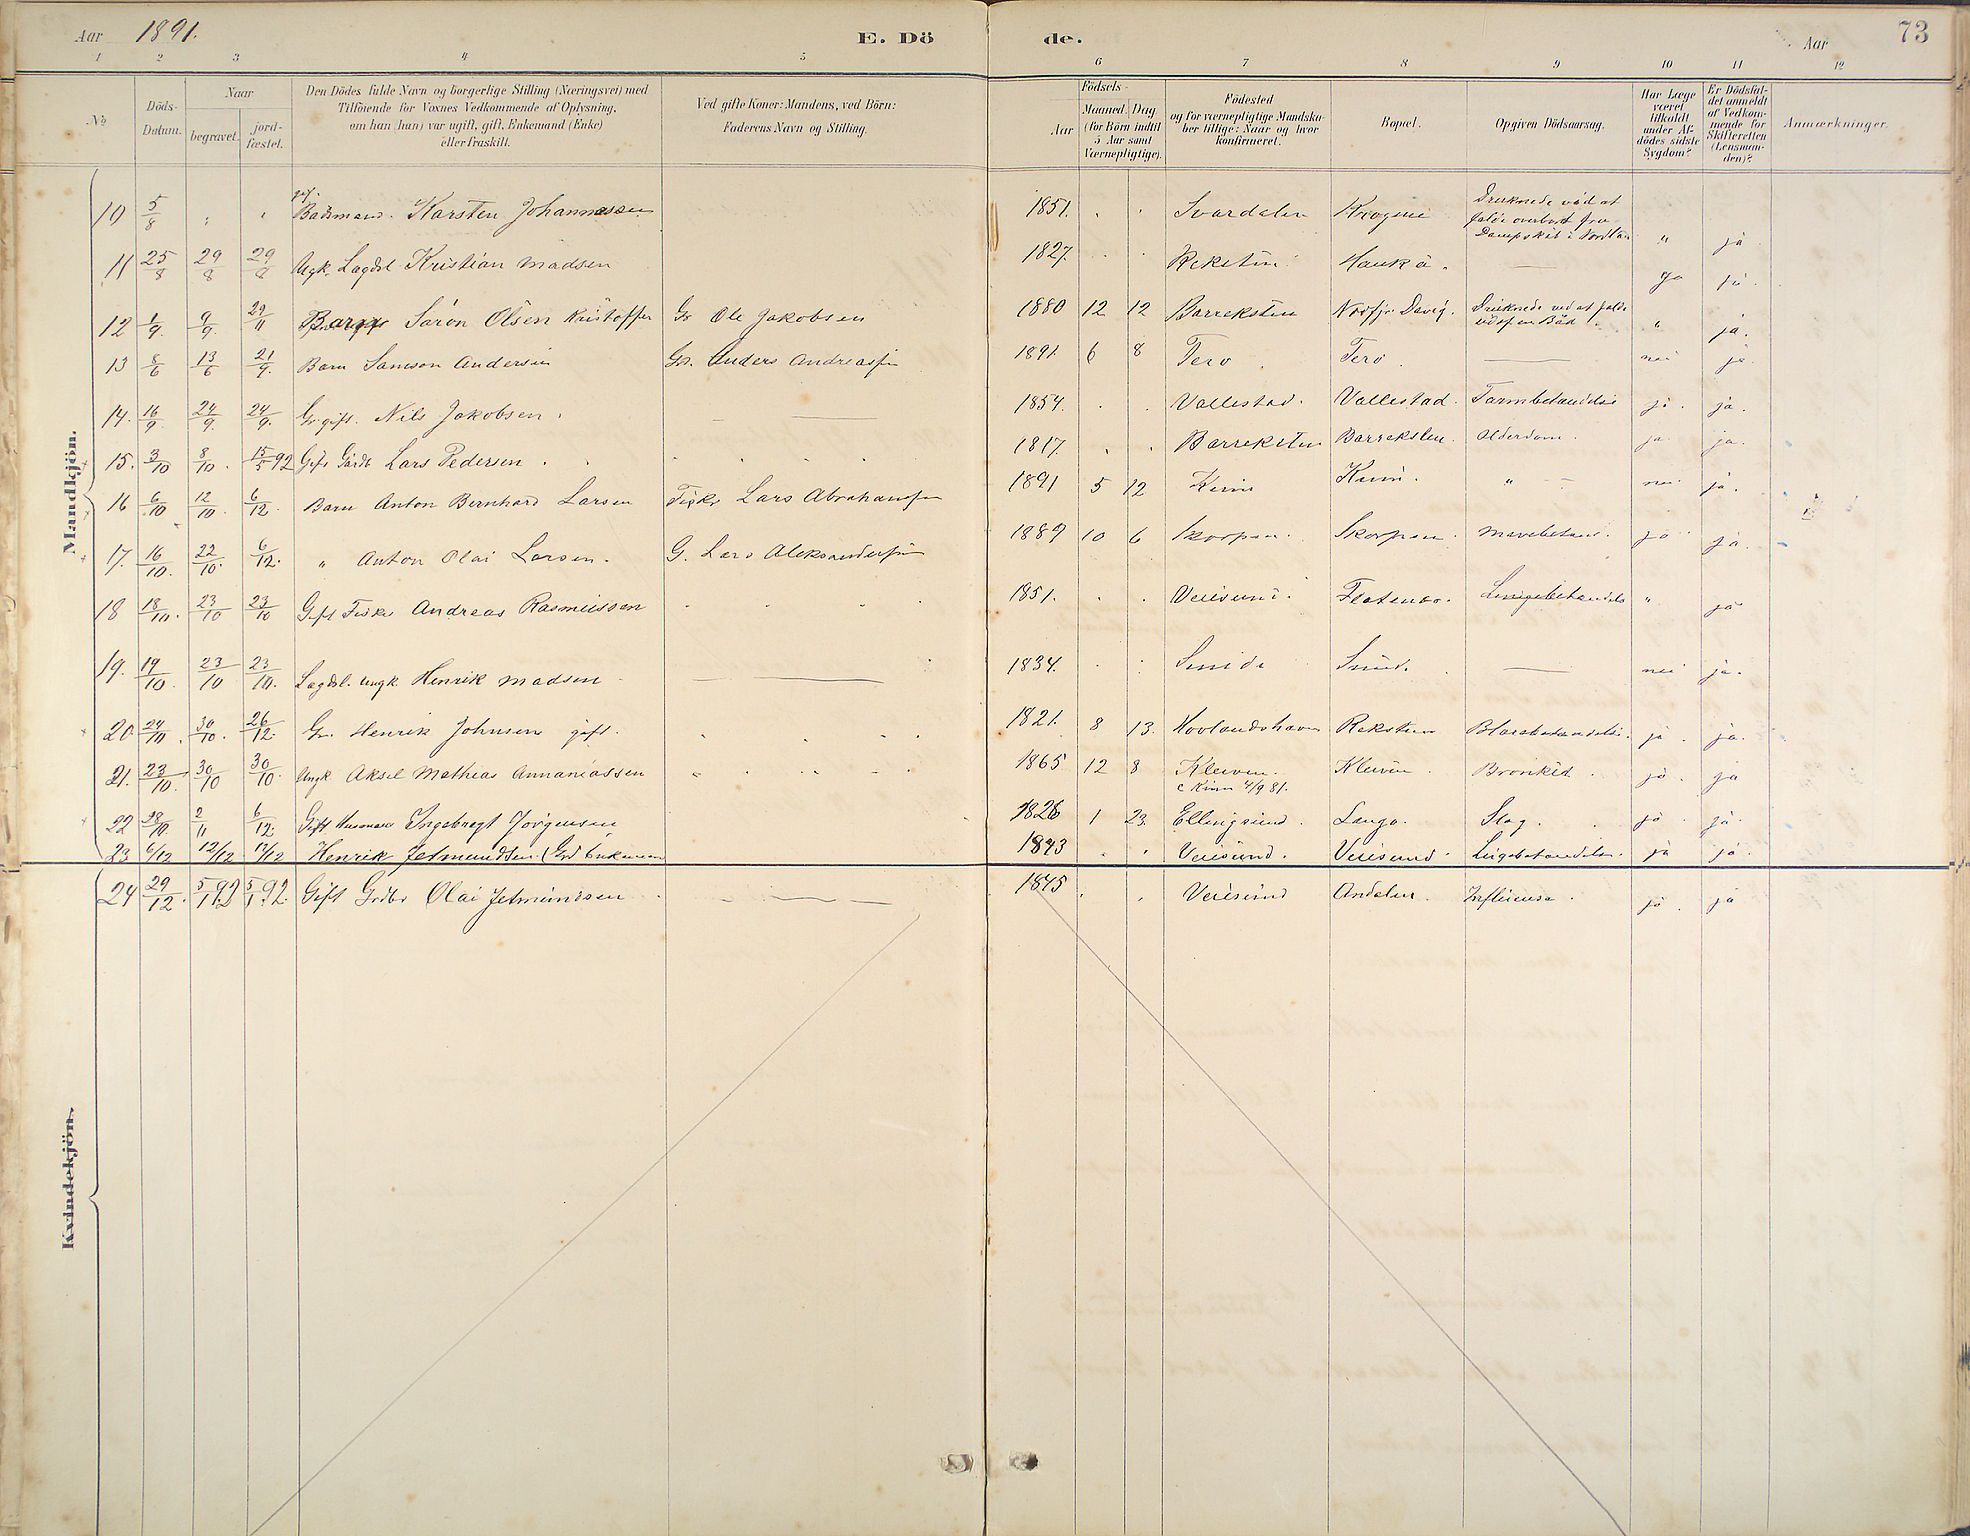 Aar 1891. E. Döde. Aar 73
1 2 3 4 5 6 7 8 9 10 11 12
No Döds-Datum. Naar begravet. jord-fæstet. Den Dödes fulde Navn og borgerlige Stilling (Næringsvei) med Tilföiende for Voxnes Vedkommende af Oplysning, om han (hun) var ugift, gift, Enkemand (Enke) eller fraskilt. Ved gifte Koner: Mandens, ved Börn: Faderens Navn og Stilling. Födsels- Aar Maaned. Dag (for Börn indtil 5 Aar samt Værnepligtige). Födested og for værnepligtige Mandskaber tillige: Naar og hvor konfirmeret. Bopæl. Opgiven Dödsaarsag. Har Læge været tilkaldt under Afdödes sidste Sygdom? Er Dödsfaldet anmeldt af Vedkommende for Skifteretten (Lensmanden)? Anmærkninger.
Mandkjön.
10 5/8 " " Baadsmand. Karsten Johannessen 1851. Svardalen Druknede ved at falde overbord fra " ja
11 25/8 29/8 29/8 Ugk. Lægdsl Kristian Madsen 1827. Reksten Haukå. — ja ja.
12 1/9. 9/9 29/11 Sørøn Olsen Gr Ole Jakobsen 1880 12 12 Barreksten Druknede ved at falde ud af en Båd " ja.
13 8/6 13/6 21/9. Barn Samson Andersen Gr. Anders Andreassen 1891 6 8 Terø Terø — nei ja.
14. 16/9 24/9. 24/9. Gr. gift. Nils Jakobsen. — 1854. Vallestad. Vallestad. Tarmbetændelse ja. ja.
15. 3/10 8/10. 15/5 92 Gift Gårdb Lars Pedersen. 1817. Barreksten Barreksten. Alderdom. ja. ja.
16 6/10 12/10. 6/12. Barn Anton Bernhard Larsen Fisker Lars Abrahamsen 1891 5 12 Kinn Kinn. " nei ja.
17. 16/10. 22/10. 6/12. " Anton Olai Larsen. G. Lars Aleksandersen 1889 10 6 Skorpen. Skorpen. Mavebetæn. ja ja.
18 18/10. 23/10 23/10 Gift Fisker Andreas Rasmussen 1851. Veiesund. Flatenøs. Lungebetændelse " ja
19. 19/10. 23/10 23/10. Lægdsl. Ungk. Henrik Madsen — 1834. — nei ja.
20 24/10. 30/10. 26/12. Gr. Henrik Johnsen gift. 1821. 8 13. Hovlandshavn Reksten Blærebetændelse. ja. ja.
21. 23/10. 30/10 30/10. Ungk Aksel Mathias Annaniassen 1865 12 8 Kleiven. c Kinn 4/9 81. Kleiven. Bronkit. ja. ja
22 28/10. 2/11 6/12. Gift Husmand Ingebregt Jørgensen 1826 1 23. Ellingsund. Langø. Slag. ja ja.
23 6/12 12/12 12/12 Henrik Jetmundsen (Grd Enkemand 1843 Veiesund. Veiesund. Lungebetændelse. ja ja.
24 29/12. 5/1 92 5/1 92. Gift Grdbr Olai Jetmundsen — 1845 Veiesund Andalen. Influensa. ja. ja
Kvindekjön.